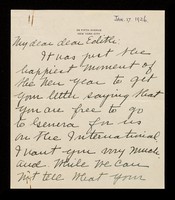 NEW YORK CITY
Jan. 17. 1926
My dear dear Edith:
It was just the
happiest moment of
the New Year to get
your letter saying that
you are free to go
to Geneva for us
on the International.
I want you very much
and. While we can
not tell what your